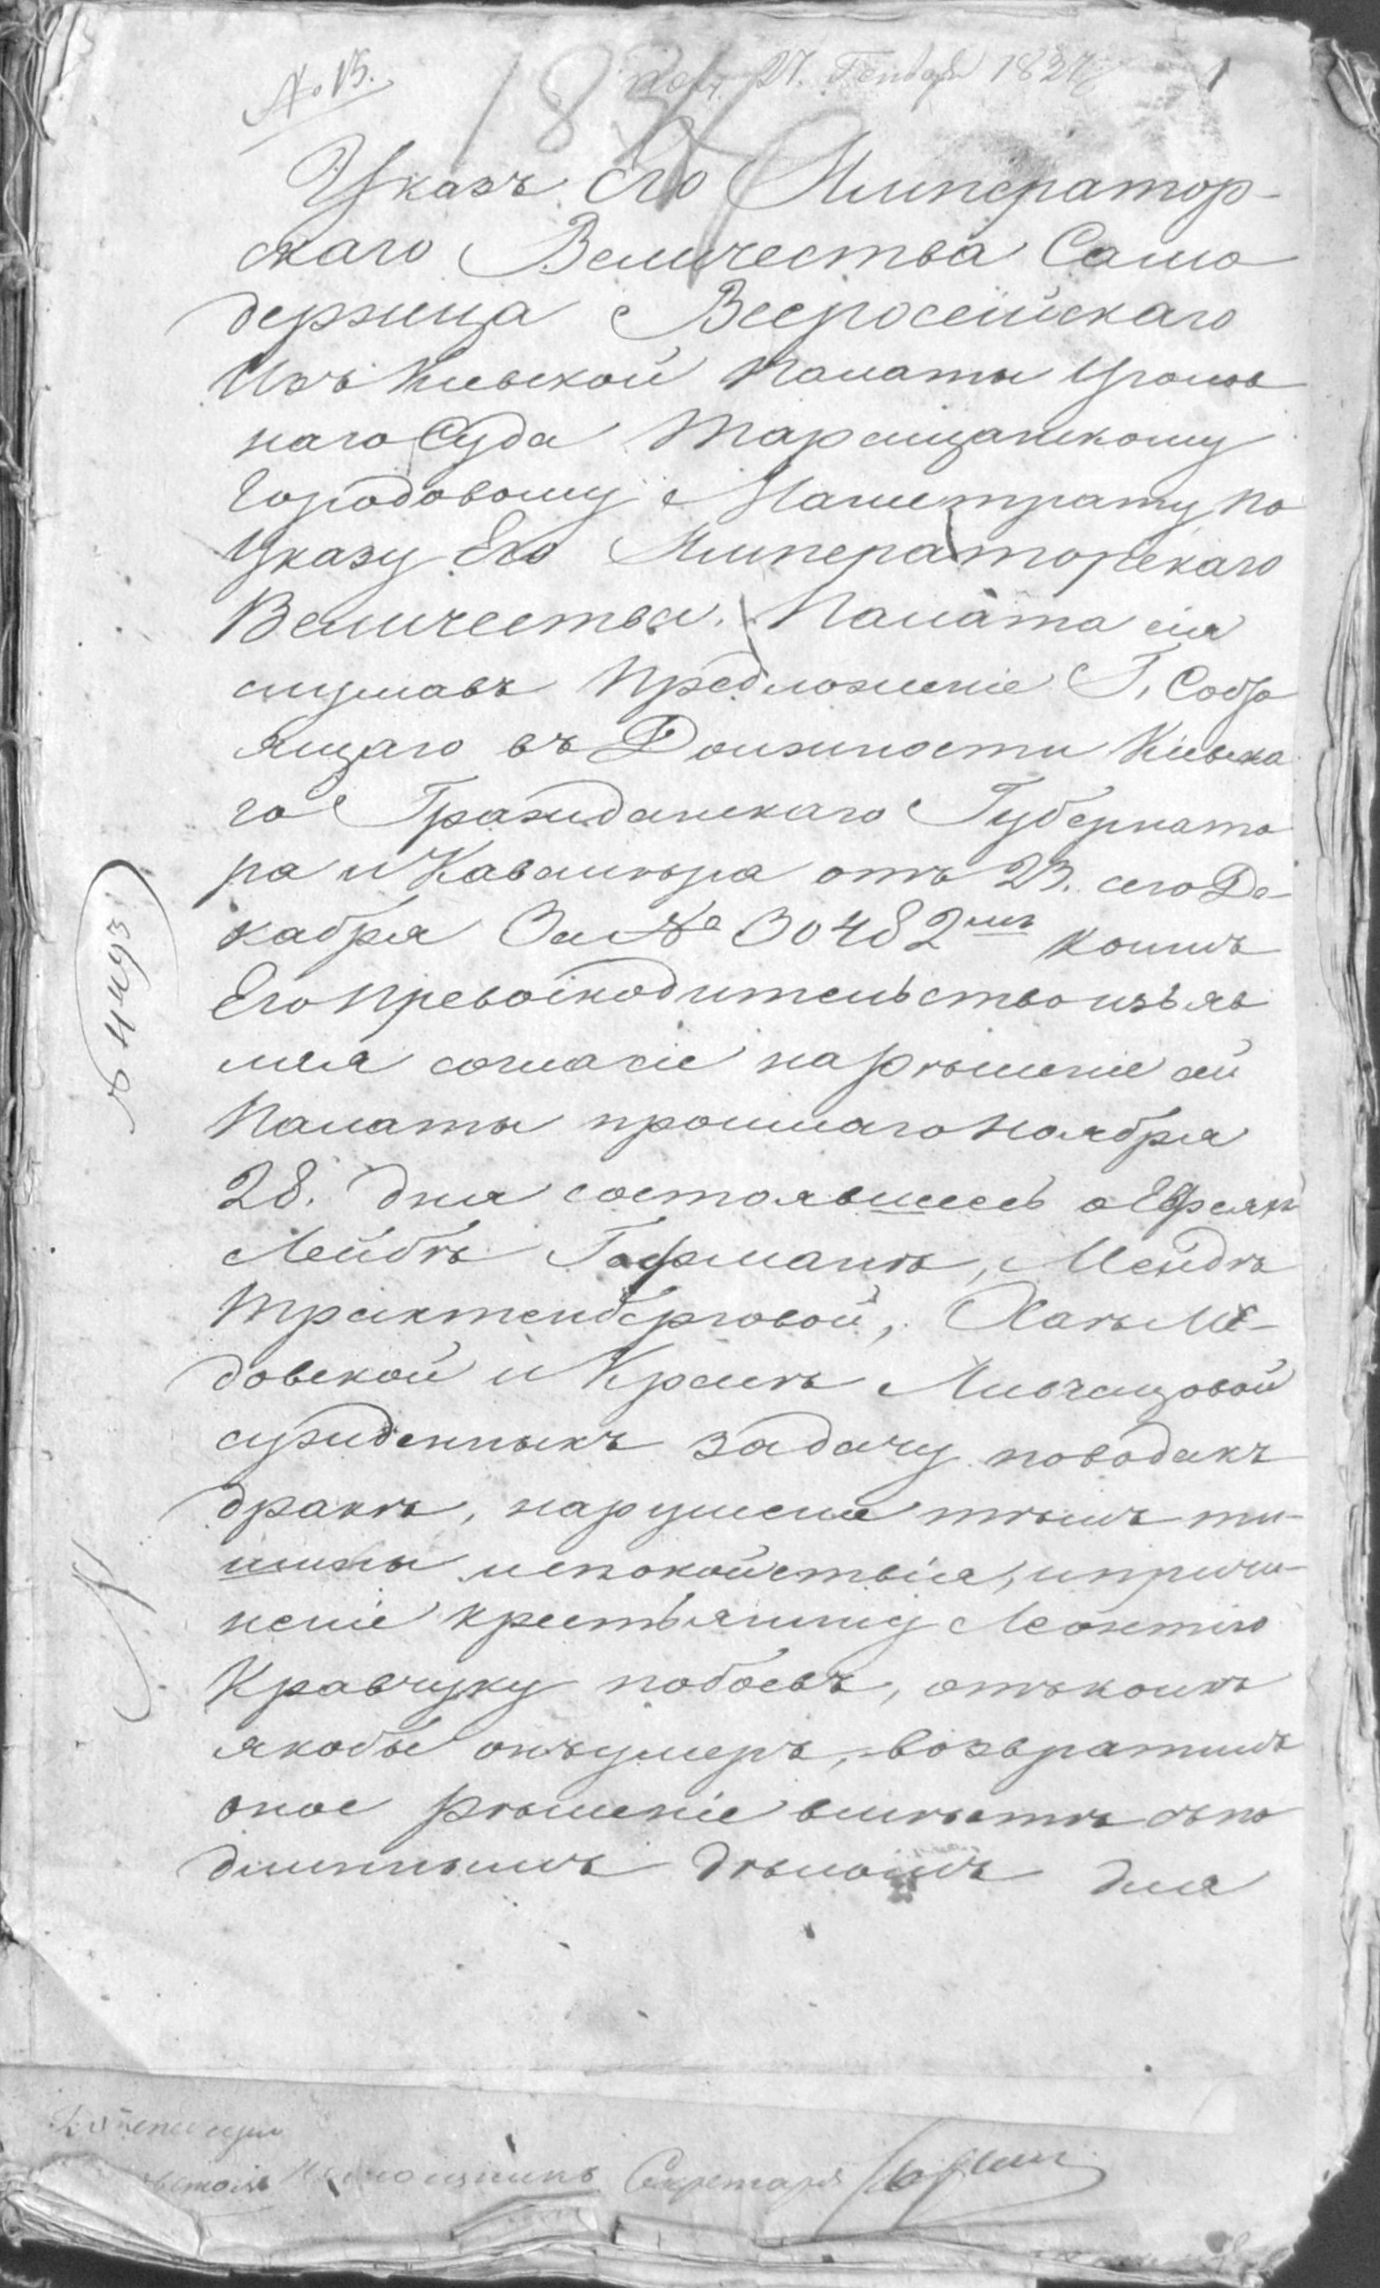 № 13.
27. Генваря 1837
1
1834
Указъ Его Император-
скаго Величества Само
держца Всеросейскаго
Изъ Киевской Палаты Уголов
наго Суда Таращанскому
Городовому Магистрату По
Указу Его Императорскаго
Величества. Палата сия
слушавъ Предложеніе Г. Состо
ящаго въ Должности Киевска
го Гражданскаго Губернато
ра и Кавалѣра отъ 23. сего Де-
кабря За № 30482мъ коимъ
Его Превосходительство изъяв
ляя согласіе на рѣшеніе сей
Палаты прошлаго Ноября
28. дня состоявшеесь о Евреяхъ
Лейбѣ Гофманѣ, Мендѣ
Трахтенберговой, Хаѣ Ме-
довской и Краинѣ Ливчацовой
сужденныхъ задачу поводахъ
дракѣ, нарушеніе тѣмъ ти-
шины и спокойствія, и причи-
неніе крестьянину Леонтію
Кравчуку побоевъ, отъ коихъ
якобы онъ умеръ, возвратилъ
оное рѣшеніе вмѣстѣ съ по
длиннымъ дѣломъ для
Секретаря